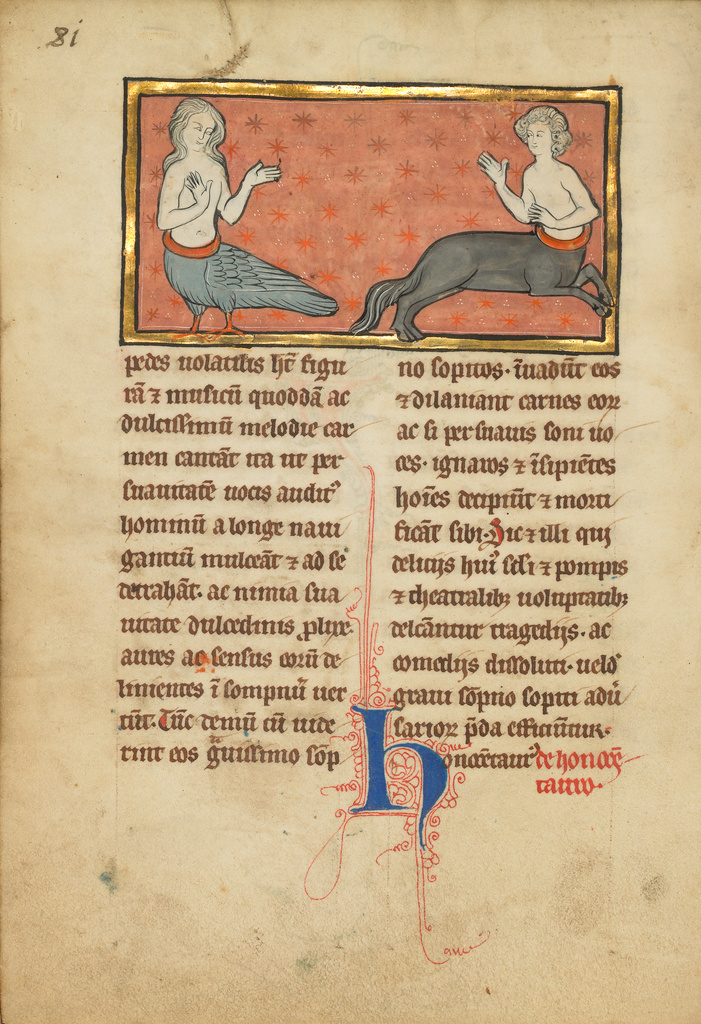 81
pedes uolatilis hr̄t figu
rā ⁊ musicū quoddā ac
dulcissimū melodie car
men cantāt ita ut per
suauitatē uocis audit᷒
hominū a longe naui
gantiū mulceāt ⁊ ad se
detrahāt. ac nimia sua
uitate dulcedinis ꝓlixe.
aures ac sensus eorū de
linientes ī sompnū uer
tūt. Tūc demū cū uide
rint eos g̃uissimo sōp
no sopitos. īuadūt eos
⁊ dilaniant carnes eoꝝ
ac si persuatus soni uo
ces. ignaros ⁊ īsipiētes
hoīes decipiūt ⁊ morti
ficāt sibi. Sic ⁊ illi qui
delicijs hui᷒ sc̄li ⁊ pompis
⁊ theatralibꝫ uoluptatibꝫ
delcāntur tragedijs. ac
comedijs dissoluti. uelđ
graui sōpno sopiti adū
sarioꝝ p̄da efficiūtur.
honocētaur᷒ de honocē
tauro.